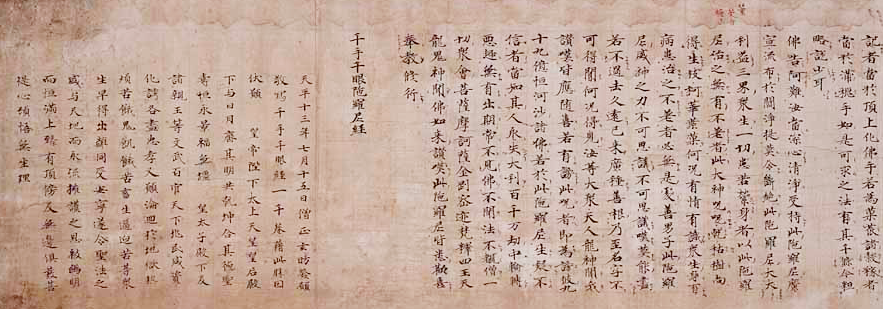 記者當於頂上化佛手若為菓蓏諸穀稼者
當於蒲桃手如是可求之法有其千條今粗
略說少耳
佛告阿難汝當深心清淨受持此陀羅尼廣
宣流布於閻浮提莫令斷絕此陀羅尼大大
利益三界衆生一切患苦縈身者以此陀羅
尼治之無有不差者此大神呪呪乾枯樹尚
得生枝柯華葉何況有情有識衆生身有
病患治之不差者必無是處善男子此陀羅
尼威神之力不可思議不可思議嘆莫能盡
若不過去久遠已來廣種善根乃至名字不
可得聞何況得見汝等大衆天人龍神聞我
讚嘆皆應隨喜若有謗此呪者即為謗彼九
十九億恒河沙諸佛若於此陀羅尼生疑不
信者當知其人永失大利百千万劫中輪轉
惡趣無有出期常不見佛不聞法不覩僧一
切衆會菩薩摩訶薩金剛密迹梵釋四王天
龍鬼神聞佛如來讚嘆此陀羅尼皆悉歡喜
奉教修行
千手千眼陀羅尼經
天平十三年七月十五日僧正玄昉發願
敬寫千手千眼經一千卷藉此勝因
伏願 皇帝陛下太上天皇皇后殿
下与日月齊其明共乾坤合其德聖
壽恒永景福無壃 皇太子殿下及
諸親王等文武百官天下兆民咸資
化誘各盡忠孝又願淪迴於地獄煩
煩若餓鬼飢餓苦畜生逼迫苦等衆
生早得出離同受安寧遂令聖法之
盛与天地而永流擁護之恩被幽明
而恒滿上臻有頂傍及無邊俱發菩
提心頓悟無生理